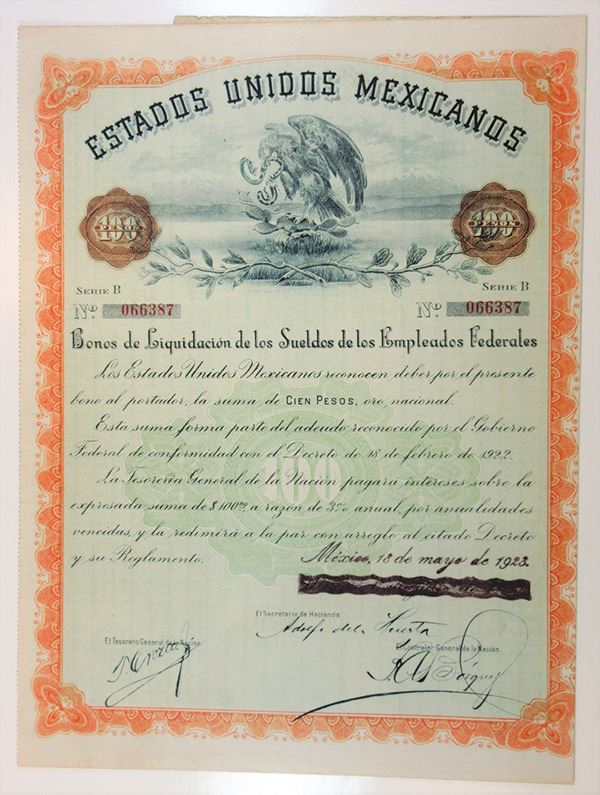 ESTADOS UNIDOS MEXICANOS
100 PESOS
100 PESOS
SERIE B
SERIE B
Nº 066387
Nº 066387
Bonos de Liquidación de los Sueldos de los Empleados Federales
Los Estados Unidos Mexicanos reconocen deber por el presente
bono al portador, la suma de CIEN PESOS, oro nacional.
Esta suma forma parte del adeudo reconocido por el Gobierno
Federal de conformidad con el Decreto de 18 de febrero de 1922.
La Tesorería General de la Nación pagará intereses sobre la
expresada suma de $100.00 a razón de 3% anual, por anualidades
vencidas, y la redimirá a la par con arreglo al citado Decreto
y su Reglamento.
100
México, 18 de mayo de 1923.
El Secretario de Hacienda
Adolfo de la Huerta
El Tesorero General de la Nación
El Contralor General de la Nación